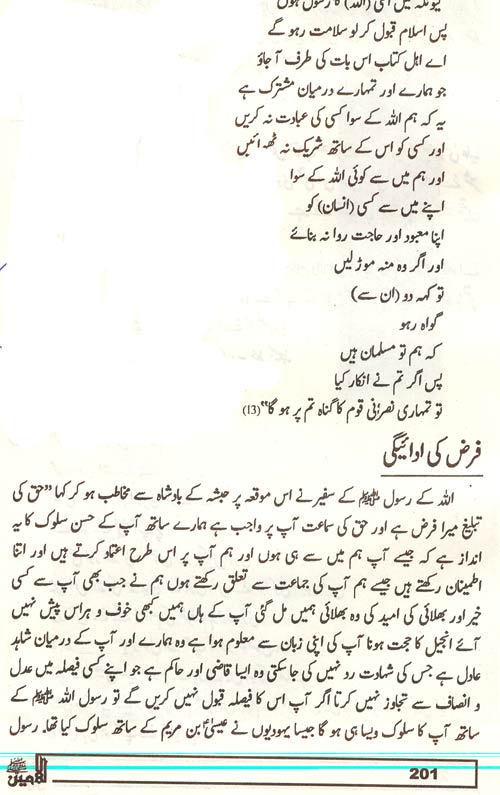 کیونکہ میں اسی (اللہ) کا رسول ہوں
پس اسلام قبول کر لو سلامت رہو گے
اے اہل کتاب اس بات کی طرف آ جاؤ
جو ہمارے اور تمہارے درمیان مشترک ہے
یہ کہ ہم اللہ کے سوا کسی کی عبادت نہ کریں
اور کسی کو اس کے ساتھ شریک نہ ٹھہرائیں
اور ہم میں سے کوئی اللہ کے سوا
اپنے میں سے کسی (انسان) کو
اپنا معبود اور حاجت روا نہ بنائے
اور اگر وہ منہ موڑ لیں
تو کہہ دو (ان سے)
گواہ رہو
کہ ہم تو مسلمان ہیں
پس اگر تم نے انکار کیا
تو تمہاری نصرٰنی قوم کا گناہ تم پر ہو گا" (13)
فرض کی ادائیگی
اللہ کے رسول ﷺ کے سفیر نے اس موقعہ پر حبشہ کے بادشاہ سے مخاطب ہو کر کہا "حق کی
تبلیغ میرا فرض ہے اور حق کی سماعت آپ پر واجب ہے ہمارے ساتھ آپ کے حسن سلوک کا یہ
انداز ہے کہ جیسے آپ ہم میں سے ہی ہوں اور ہم آپ پر اس طرح اعتماد کرتے ہیں اور اتنا
اطمینان رکھتے ہیں جیسے ہم آپ کی جماعت سے تعلق رکھتے ہوں ہم نے جب بھی آپ سے کسی
خیر اور بھلائی کی امید کی وہ بھلائی ہمیں مل گئی آپ کے ہاں ہمیں کبھی خوف و ہراس پیش نہیں
آئے انجیل کا حجت ہونا آپ کی اپنی زبان سے معلوم ہوا ہے وہ ہمارے اور آپ کے درمیان شاہد
عادل ہے جس کی شہادت رد نہیں کی جا سکتی وہ ایسا قاضی اور حاکم ہے جو اپنے کسی فیصلہ میں عدل
و انصاف سے تجاوز نہیں کرتا اگر آپ اس کا فیصلہ قبول نہیں کریں گے تو رسول اللہ ﷺ کے
ساتھ آپ کا سلوک ویسا ہی ہو گا جیسا یہودیوں نے عیسیٰؑ بن مریم کے ساتھ سلوک کیا تھا۔ رسول
الامین ﷺ
201